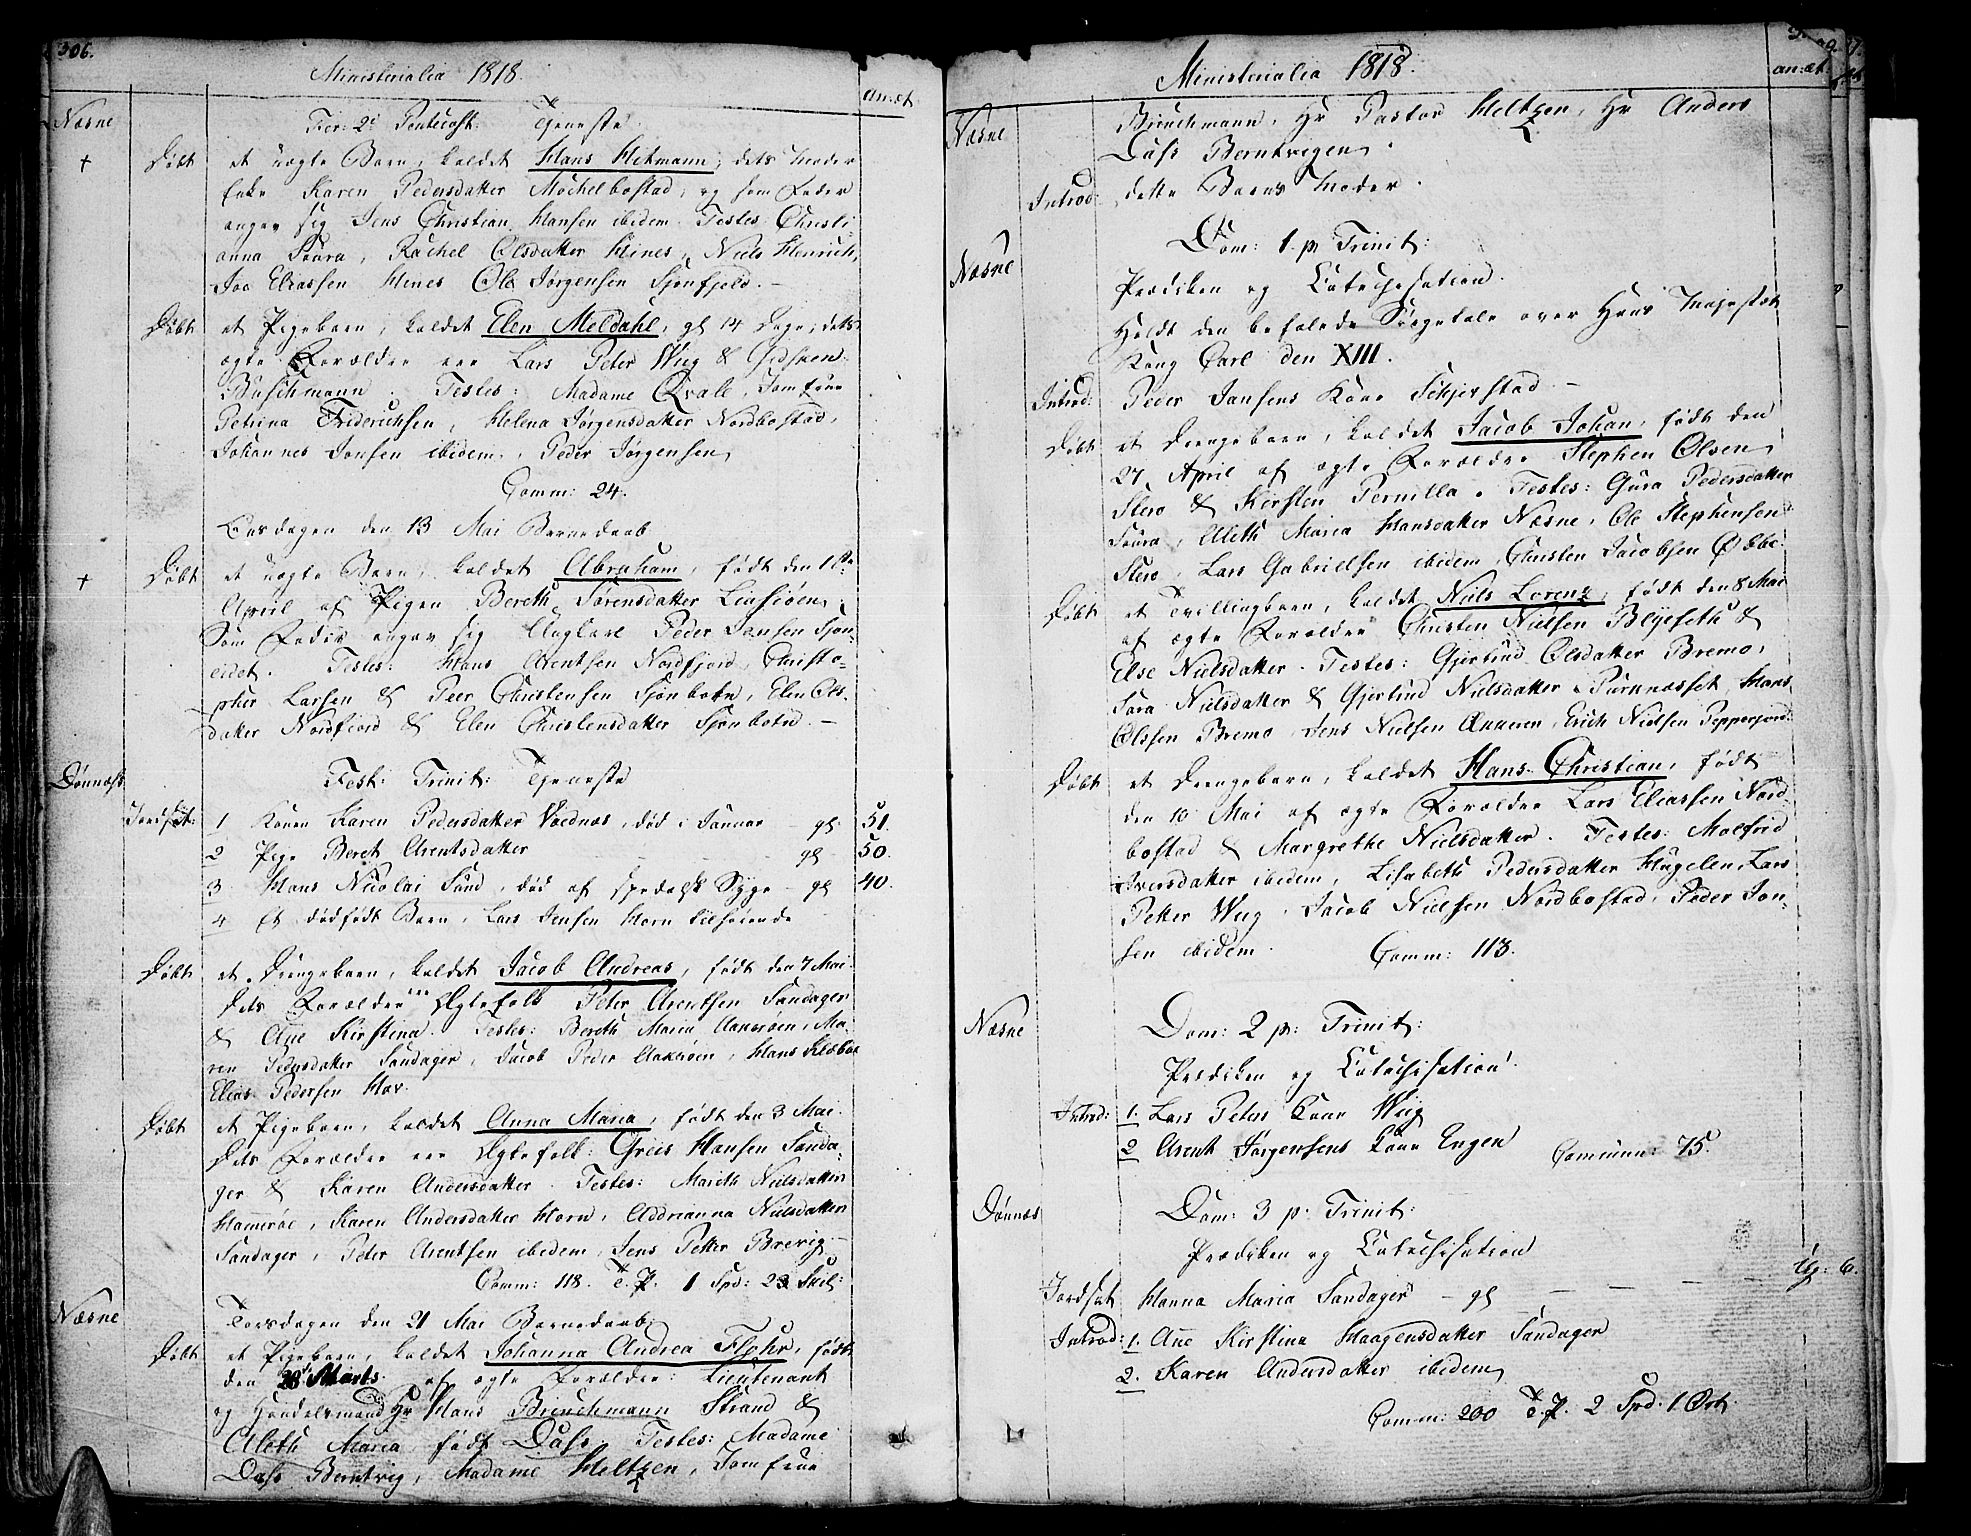 306.
Ministerialia 1818.
an: æt
Næsne
Fer: 2d Pentecost: Tjeneste
+ Døbt et uægte Barn, kaldet Hans Hitmann, dets Moder
Enke Karen Pedersdatter Mochelbostad, og som Fader
angav sig Jens Christian Hansen ibidem. Testes Christi-
anna Soura, Rachel Olsdatter Hines, Niels Henrich,
Eliassen Hines Ole Jørgensen Sjonfjeld. -
Døbt et Pigebarn, kaldet Elen Meldahl, gl 14 Dage, dets
ægte Forældre ere Lars Peter Wiig & Gidsken
Buschmann. Testes: Madame Qvale, Jomfrue
Petrina Friderichsen, Helena Jørgensdatter Nordbostad,
Johannes Jonsen ibidem, Peder Jørgensen
Comm: 24.
Onsdagen den 13 Mai Barnedaab
+ Døbt et uægte Barn, kaldet Abraham, født den 10de
April af Pigen Bereth Sørensdatter
Som Fader angav sig Ungkarl Peder Jensen Sjon-
eidet. Testes: Hans Arentsen Nordfjord, Christo-
pher Larsen & Peer Christensen Sjonbotn, Elen Ols-
datter Nordfiord & Elen Christensdatter Sjonbotn. -
Dønnæs
Fest: Trinit: Tjeneste
Jordfæt: 1 Konen Karen Pedersdatter Vædnæs, død i Januar - gl 51.
2 Pige Beret Arentsdatter gl 50.
3 Hans Nicolai Sund, død af spedalsk Syge - gl 40.
4 Et dødfødt Barn, Lars Jensen Horn tilhørende
Døbt et Drengebarn, kaldet Jacob Andreas, født den 7 Mai.
Dets Forældre ere Ægtefolk Peter Arentsen Sandager
& Ane Kirstina. Testes: Bereth Maria, Ma-
ren Pedersdatter Sandager, Jacob Peder, Hans
Elias Pedersen Hov.
Døbt et Pigebarn, kaldet Anna Maria, født den 3 Mai.
Dets Forældre ere Ægtefolk: Greis Hansen Sanda-
ger & Karen Andersdatter. Testes: Mareth Nielsdatter
Hammerøe, Karen Andersdatter Horn, Addrianna Nielsdatter
Sandager, Peter Arentsen ibidem, Jens Petter Brevig. -
Comm: 118. T. P. 1 Spd: 23 Skil:
Næsne
Torsdagen den 21 Mai Barnedaab
Døbt et Pigebarn, kaldet Johanna Andrea Flohr, født
den 28 Marts af ægte Forældre: Lieutenant
og Handelsmand Hr Hans Breuchmann Strand &
Aleth Maria født Dass. Testes: Madame
Dass Berntvig, Madame Heltzen, Jomfrue
Ministerialia 1818.
an: æt.
Næsne
Breuchmann, Hr Pastor Heltzen, Hr Anders
Dass Berntvigen.
Introd: dette Barns Moder.
Næsne
Dom: 1. p. Trinit:
Prædiken og Catechisation.
Holdt den befalede Sørgetale over Hans Majestæt
Kong Carl den XIII.
Introd: Peder Jansens Kone Schjerstad -
Døbt et Drengebarn, kaldet Jacob Johan, født den
27 April af ægte Forældre Stephen Olsen
Stero & Kirsten Pernilla. Testes: Gura Pedersdatter
Soura, Aleth Maria Hansdatter Næsne, Ole Stephensen
Stero, Lars Gabrielsen ibidem, Christen Jacobsen
Døbt et Tvillingbarn, kaldet Niels Lorenz, født den 8 Mai
af ægte Forældre Christen Nielsen Blyeseth &
Else Nielsdatter. Testes: Gjertrud Olsdatter Bremo,
Sara Nielsdatter & Gjertrud Nielsdatter Purnæsset, Hans
Olssen Bremo, Jens Nielsen, Erich Nielsen Pepperjord:
Døbt et Drengebarn, kaldet Hans Christian, født
den 10 Mai af ægte Forældre Lars Eliassen Nord-
bostad & Margrethe Nielsdatter. Testes: Malfrid
Iversdatter ibidem, Lisabeth Pedersdatter Hugelen, Lars
Petter Wiig, Jacob Nielsen Nordbostad, Peder Jon-
sen ibidem. Comm: 113.
Næsne
Dom: 2 p: Trinit:
Prædiken og Catechisation.
Introd: 1. Lars Peters Kone Wiig
2 Arent Jørgensens Kone Engen Commun: 75.
Dønnæs
Dom: 3 p. Trinit:
Prædiken og Catechisation
Jordfæt Hanna Maria Sandager - gl - - - - Ug: 6.
Introd: 1. Ane Kirstina Haagensdatter Sandager
2. Karen Andersdatter ibidem
Comm: 200 T. P. 2 Spd. 1 Ort.